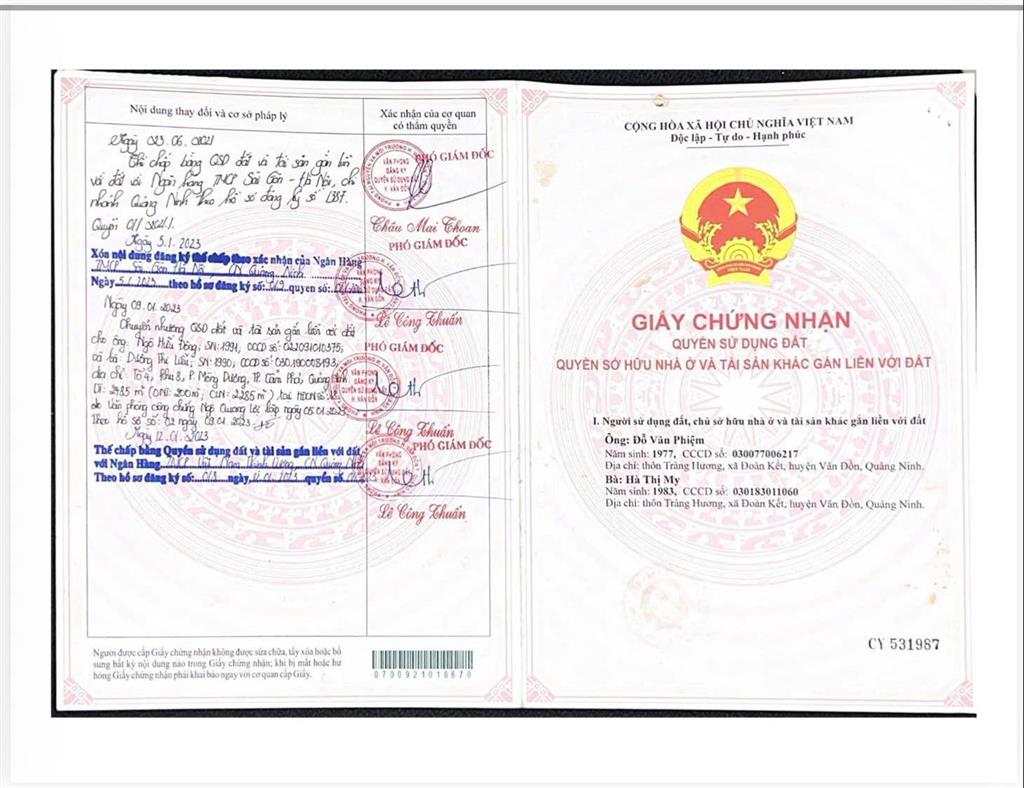 Nội dung thay đổi và cơ sở pháp lý
Xác nhận của cơ quan
có thẩm quyền
Ngày 023.06.2021
Thế chấp bằng QSD đất và tài sản gắn liền
với đất với Ngân hàng TMCP Sài Gòn - Hà Nội, chi
nhánh Quảng Ninh theo hồ sơ đăng ký số
Quyển 01/2021.
PHÓ GIÁM ĐỐC
VĂN PHÒNG
ĐĂNG KÝ
QUYỀN SỬ DỤNG ĐẤT
H. VÂN ĐỒN
Châu Mai Thoan
Ngày 5.1.2023
Xóa nội dung đăng ký thế chấp theo xác nhận của Ngân Hàng
TMCP Sài Gòn Hà Nội, CN Quảng Ninh
Ngày 5/1/2023 theo hồ sơ đăng ký số: quyển số:
PHÓ GIÁM ĐỐC
Lê Công Thuấn
Ngày 09.01.2023
Chuyển nhượng QSD đất và tài sản gắn liền với đất
cho ông: Ngô Hữu Đông; SN: 1991, CCCD số: 022091010375;
và bà: Dương Thị Liễu; SN: 1990; CCCD số: 030190008193;
địa chỉ: Tổ 4, khu 8, P. Mông Dương, TP. Cẩm Phả, Quảng Ninh
DT: 2485 m² (ONT: 200 m²; CLN: 2285 m²) tại HĐCN số:
do Văn phòng công chứng Ngô Quang lập ngày 05.01.2023
Theo hồ sơ số: 02 ngày 09.01.2023
PHÓ GIÁM ĐỐC
Lê Công Thuấn
Ngày 12.01.2023
Thế chấp bằng Quyền sử dụng đất và tài sản gắn liền với đất
với Ngân Hàng TMCP Việt Nam Thịnh Vượng, CN Quảng Ninh
Theo hồ sơ đăng ký số: 013 ngày 12.01.2023 quyển số
PHÓ GIÁM ĐỐC
Lê Công Thuấn
Người được cấp Giấy chứng nhận không được sửa chữa, tẩy xóa hoặc bổ
sung bất kỳ nội dung nào trong Giấy chứng nhận; khi bị mất hoặc hư
hỏng Giấy chứng nhận phải khai báo ngay với cơ quan cấp Giấy.
0700921016670
CỘNG HÒA XÃ HỘI CHỦ NGHĨA VIỆT NAM
Độc lập - Tự do - Hạnh phúc
GIẤY CHỨNG NHẬN
QUYỀN SỬ DỤNG ĐẤT
QUYỀN SỞ HỮU NHÀ Ở VÀ TÀI SẢN KHÁC GẮN LIỀN VỚI ĐẤT
I. Người sử dụng đất, chủ sở hữu nhà ở và tài sản khác gắn liền với đất
Ông: Đỗ Văn Phiệm
Năm sinh: 1977, CCCD số: 030077006217
Địa chỉ: thôn Tràng Hương, xã Đoàn Kết, huyện Vân Đồn, Quảng Ninh.
Bà: Hà Thị My
Năm sinh: 1983, CCCD số: 030183011060
Địa chỉ: thôn Tràng Hương, xã Đoàn Kết, huyện Vân Đồn, Quảng Ninh.
CY 531987